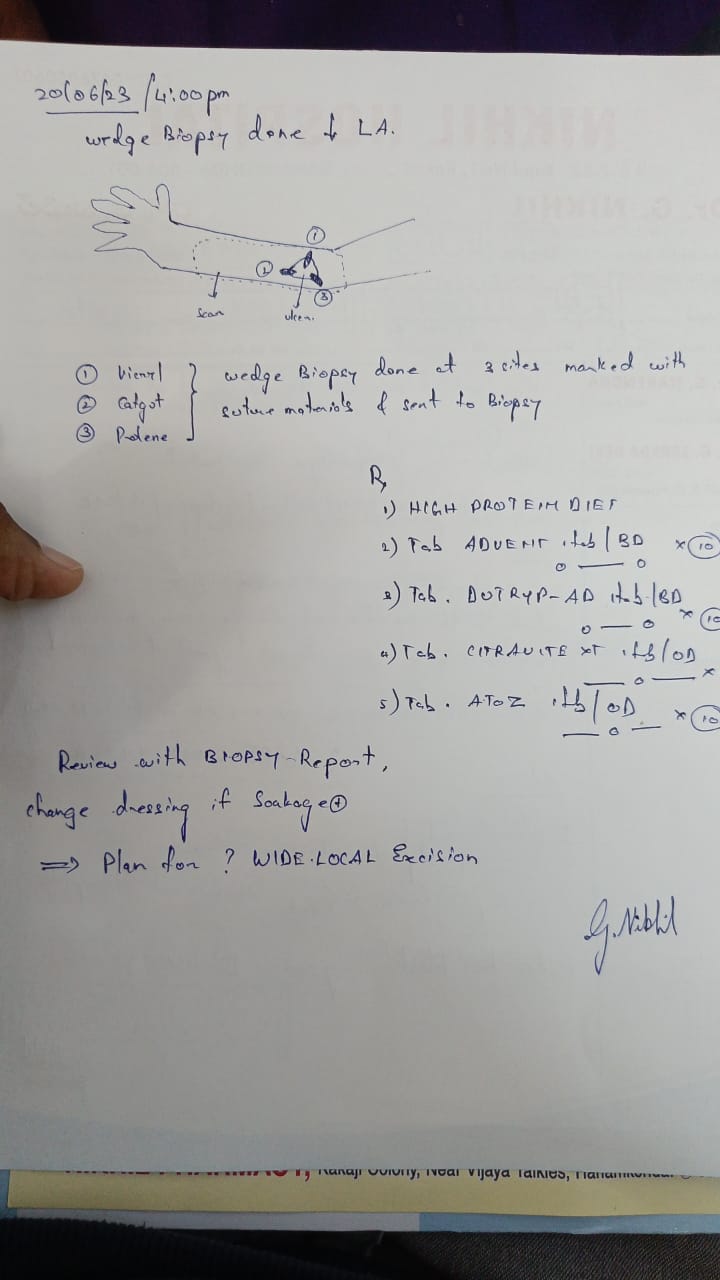 20/06/23 /4:00pm
wedge Biopsy done ↓ LA.
①
②
③
scar
ulcer.
① Vicryl
② Catgut
③ Prolene
wedge Biopsy done at 3 sites marked with
suture materials & sent to Biopsy
Rx
1) HIGH PROTEIN DIET
2) Tab ADVENT 1tab/BD x 10
o — o
3) Tab. DOTRYP-AD 1tab/BD x 10
o — o
4) Tab. CITRAVITE XT 1tb/OD
— o — x
5) Tab. A TO Z 1tb/OD x 10
— o —
Review with BIOPSY-Report,
change dressing if Soakage ⊕
⇒ Plan for ? WIDE LOCAL Excision
G. Nikhil
Kakaji Colony, Near Vijaya Talkies,